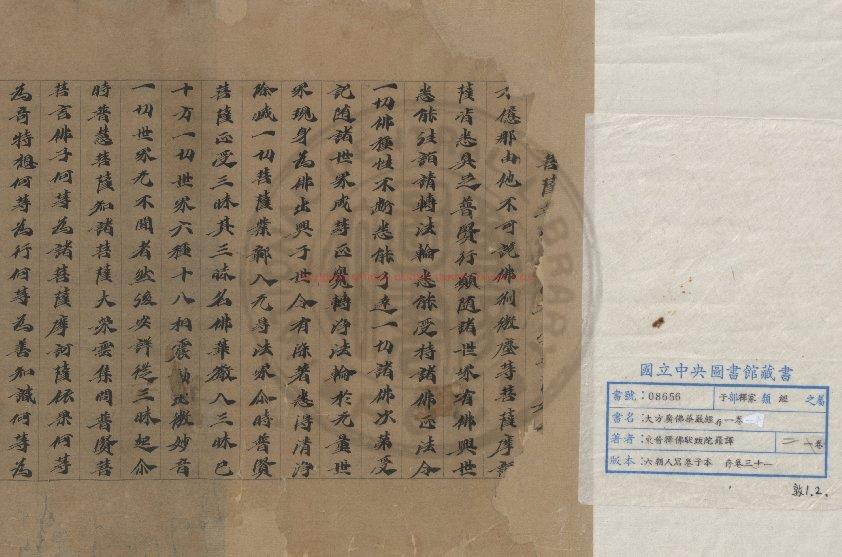 菩薩
億那由他不可說佛剎微塵等菩薩摩
薩皆悉具足普賢行願隨諸世界有佛興世
悉能往詣請轉法輪悉能受持諸佛正法令
一切佛種性不斷悉能了達一切諸佛次第受
記随諸世界成等正覺轉淨法輪於无量世
界現身為佛出興于世令有染著悉得清淨
除滅一切菩薩業鄣入无㝵法界尒時普賢
菩薩正受三昧其三昧名佛華嚴入三昧已
十方一切世界六種十八相震動出微妙音
一切世界无不聞者然後安詳從三昧起尒
時普慧菩薩知諸菩薩大衆雲集問普賢菩
薩言佛子何等為諸菩薩摩訶薩依果何等
為奇特想何等為行何等為善知識何等為
國立中央圖書館藏書
書號：08656 子部釋家類 經 之屬
書名：大方廣佛華嚴經存一卷
著者：東晉釋佛馱跋陀羅譯 一卷
版本：六朝人寫卷子本 存卷三十一
敦1.2.